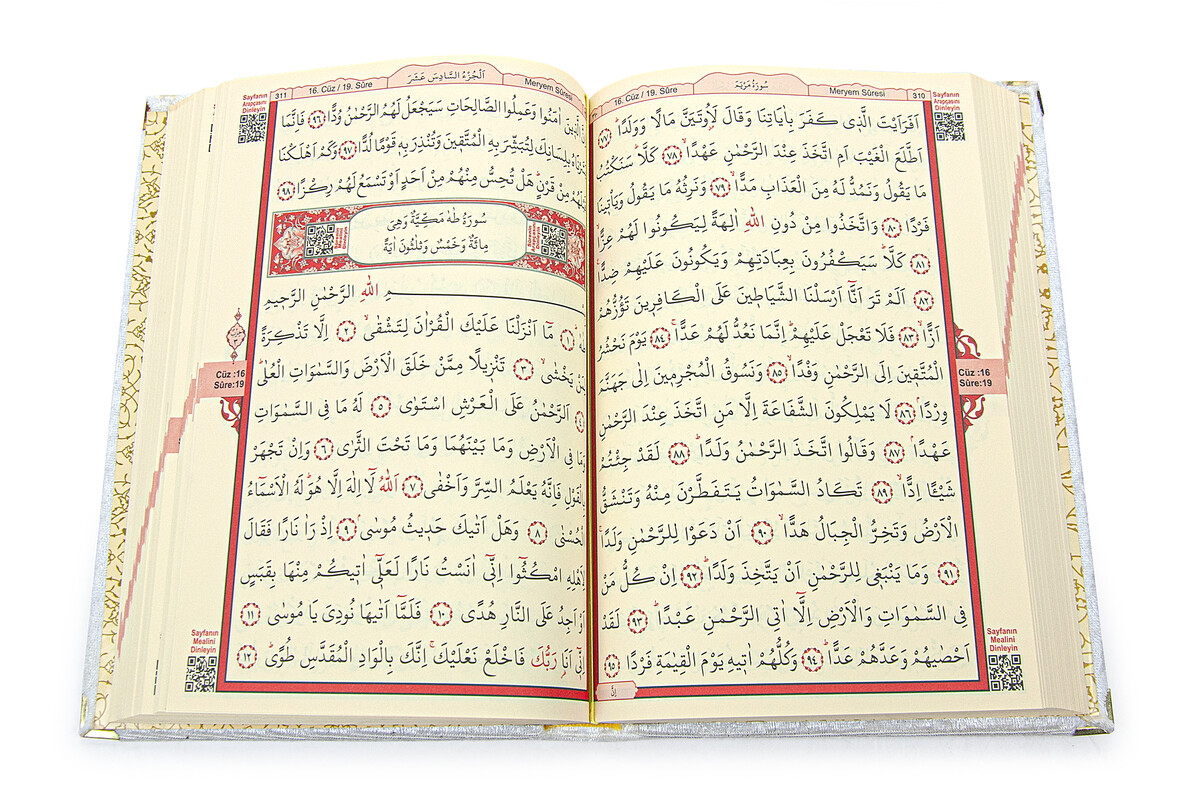 310
Meryem Sûresi
سُورَةُ مَرْيَمَ
16. Cüz / 19. Sûre
Sayfanın
Arapçasını
Dinleyin
اَفَرَاَيْتَ الَّذ۪ي كَفَرَ بِاٰيَاتِنَا وَقَالَ لَاُو۫تَيَنَّ مَالًا وَوَلَدًاۜ ﴿٧٧﴾
اَطَّلَعَ الْغَيْبَ اَمِ اتَّخَذَ عِنْدَ الرَّحْمٰنِ عَهْدًاۙ ﴿٧٨﴾ كَلَّاۜ سَنَكْتُبُ
مَا يَقُولُ وَنَمُدُّ لَهُ مِنَ الْعَذَابِ مَدًّاۙ ﴿٧٩﴾ وَنَرِثُهُ مَا يَقُولُ وَيَأْت۪ينَا
فَرْدًا ﴿٨٠﴾ وَاتَّخَذُوا مِنْ دُونِ اللّٰهِ اٰلِهَةً لِيَكُونُوا لَهُمْ عِزًّاۙ
﴿٨١﴾ كَلَّاۜ سَيَكْفُرُونَ بِعِبَادَتِهِمْ وَيَكُونُونَ عَلَيْهِمْ ضِدًّا۟
﴿٨٢﴾ اَلَمْ تَرَ اَنَّٓا اَرْسَلْنَا الشَّيَاط۪ينَ عَلَى الْكَافِر۪ينَ تَؤُزُّهُمْ
اَزًّاۙ ﴿٨٣﴾ فَلَا تَعْجَلْ عَلَيْهِمْۜ اِنَّمَا نَعُدُّ لَهُمْ عَدًّاۚ ﴿٨٤﴾ يَوْمَ نَحْشُرُ
الْمُتَّق۪ينَ اِلَى الرَّحْمٰنِ وَفْدًاۙ ﴿٨٥﴾ وَنَسُوقُ الْمُجْرِم۪ينَ اِلٰى جَهَنَّمَ
وِرْدًاۢ ﴿٨٦﴾ لَا يَمْلِكُونَ الشَّفَاعَةَ اِلَّا مَنِ اتَّخَذَ عِنْدَ الرَّحْمٰنِ
عَهْدًاۢ ﴿٨٧﴾ وَقَالُوا اتَّخَذَ الرَّحْمٰنُ وَلَدًاۜ ﴿٨٨﴾ لَقَدْ جِئْتُمْ
شَيْـًٔا اِدًّاۙ ﴿٨٩﴾ تَكَادُ السَّمٰوَاتُ يَتَفَطَّرْنَ مِنْهُ وَتَنْشَقُّ
الْاَرْضُ وَتَخِرُّ الْجِبَالُ هَدًّاۙ ﴿٩٠﴾ اَنْ دَعَوْا لِلرَّحْمٰنِ وَلَدًاۚ
﴿٩١﴾ وَمَا يَنْبَغ۪ي لِلرَّحْمٰنِ اَنْ يَتَّخِذَ وَلَدًاۜ ﴿٩٢﴾ اِنْ كُلُّ مَنْ
فِي السَّمٰوَاتِ وَالْاَرْضِ اِلَّٓا اٰتِي الرَّحْمٰنِ عَبْدًاۜ ﴿٩٣﴾ لَقَدْ
اَحْصٰيهُمْ وَعَدَّهُمْ عَدًّاۜ ﴿٩٤﴾ وَكُلُّهُمْ اٰت۪يهِ يَوْمَ الْقِيٰمَةِ فَرْدًا ﴿٩٥﴾
اِنَّ
Cüz :16
Sûre:19
Sayfanın
Mealini
Dinleyin
Meryem Sûresi
اَلْجُزْءُ السَّادِسَ عَشَرَ
16. Cüz / 19. Sûre
311
Sayfanın
Arapçasını
Dinleyin
الَّذ۪ينَ اٰمَنُوا وَعَمِلُوا الصَّالِحَاتِ سَيَجْعَلُ لَهُمُ الرَّحْمٰنُ وُدًّا ﴿٩٦﴾ فَاِنَّمَا
بِلِسَانِكَ لِتُبَشِّرَ بِهِ الْمُتَّق۪ينَ وَتُنْذِرَ بِه۪ قَوْمًا لُدًّا ﴿٩٧﴾ وَكَمْ اَهْلَكْنَا
قَبْلَهُمْ مِنْ قَرْنٍۜ هَلْ تُحِسُّ مِنْهُمْ مِنْ اَحَدٍ اَوْ تَسْمَعُ لَهُمْ رِكْزًا ﴿٩٨﴾
سُورَةُ طٰهٰ مَكِّيَّةٌ وَهِيَ
مِائَةٌ وَخَمْسٌ وَثَلٰثُونَ اٰيَةً
ـمِ اللّٰهِ الرَّحْمٰنِ الرَّح۪يمِ
﴿١﴾ مَٓا اَنْزَلْنَا عَلَيْكَ الْقُرْاٰنَ لِتَشْقٰىۙ ﴿٢﴾ اِلَّا تَذْكِرَةً
لِمَنْ يَخْشٰىۙ ﴿٣﴾ تَنْز۪يلًا مِمَّنْ خَلَقَ الْاَرْضَ وَالسَّمٰوَاتِ الْعُلٰىۜ
﴿٤﴾ اَلرَّحْمٰنُ عَلَى الْعَرْشِ اسْتَوٰى ﴿٥﴾ لَهُ مَا فِي السَّمٰوَاتِ
وَمَا فِي الْاَرْضِ وَمَا بَيْنَهُمَا وَمَا تَحْتَ الثَّرٰى ﴿٦﴾ وَاِنْ تَجْهَرْ
بِالْقَوْلِ فَاِنَّهُ يَعْلَمُ السِّرَّ وَاَخْفٰى ﴿٧﴾ اَللّٰهُ لَٓا اِلٰهَ اِلَّا هُوَۜ لَهُ الْاَسْمَٓاءُ
الْحُسْنٰى ﴿٨﴾ وَهَلْ اَتٰيكَ حَد۪يثُ مُوسٰىۢ ﴿٩﴾ اِذْ رَاٰ نَارًا فَقَالَ
لِاَهْلِهِ امْكُثُٓوا اِنّ۪ٓي اٰنَسْتُ نَارًا لَعَلّ۪ٓي اٰت۪يكُمْ مِنْهَا بِقَبَسٍ
اَوْ اَجِدُ عَلَى النَّارِ هُدًى ﴿١٠﴾ فَلَمَّٓا اَتٰيهَا نُودِيَ يَا مُوسٰى ﴿١١﴾
اِنّ۪ٓي اَنَا۬ رَبُّكَ فَاخْلَعْ نَعْلَيْكَۚ اِنَّكَ بِالْوَادِ الْمُقَدَّسِ طُوًىۜ ﴿١٢﴾
Cüz :16
Sûre:19
Sayfanın
Mealini
Dinleyin